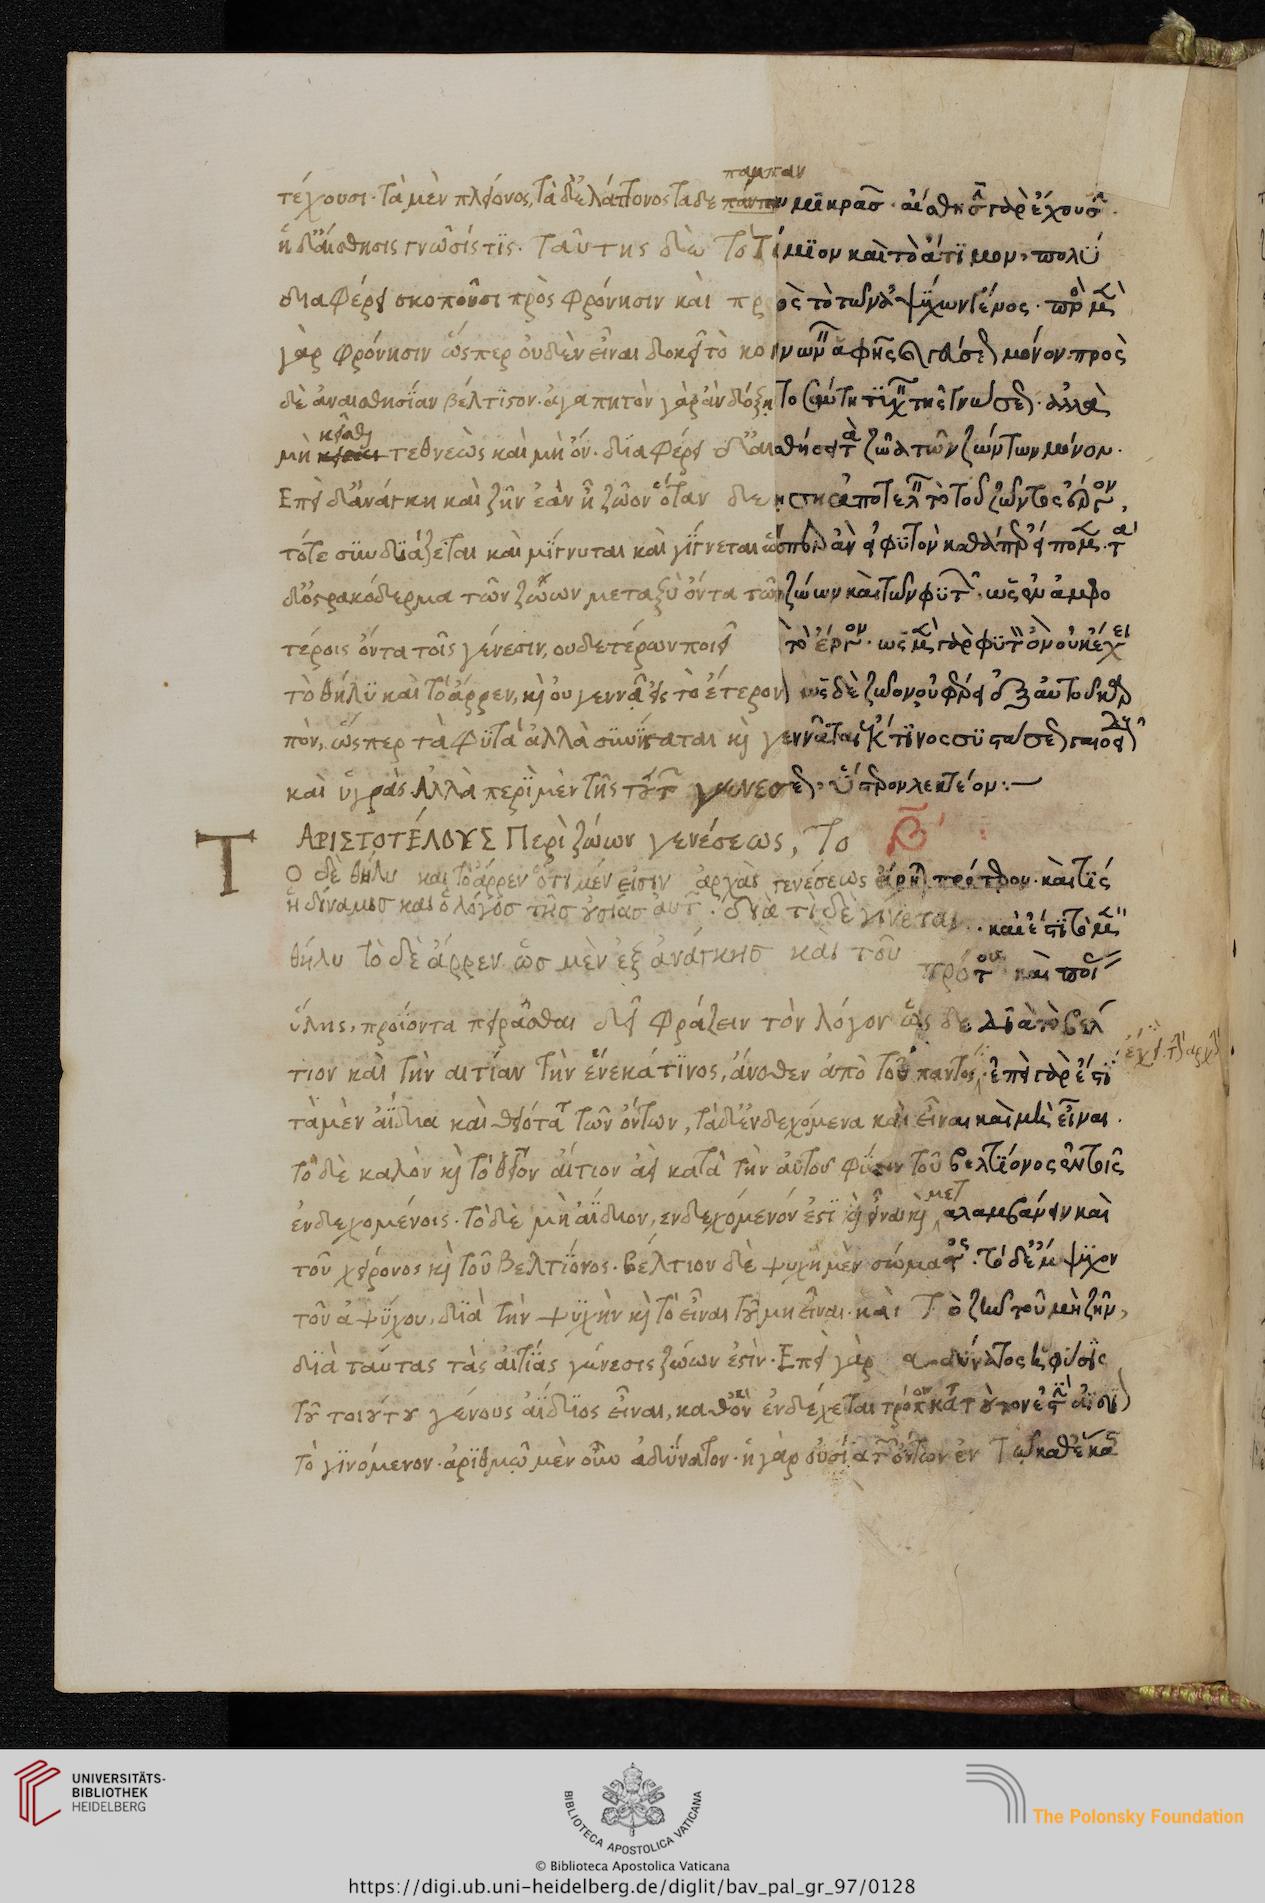 πάμπαν
τέχουσι· τὰ μὲν πλείονος, τὰ δ' ἐλάττονος τὰ δε πάνπαν μικρᾶς· αἴσθησιν γὰρ ἔχουσιν·
ἡ δ' αἴσθησις γνῶσίς τϊς· ταύτης δὲ τὸ τίμϊον καὶ τὸ ἄτϊμον, πολὺ
διαφέρει σκοποῦσι πρὸς φρόνησιν καὶ πρὸς τὸ τῶν ἀψύχων γένος· πρὸς μὲν
γὰρ φρόνησιν ὥσπερ οὐδὲν εἶναι δοκεῖ τὸ κοινωνεῖν ἁφῆς καὶ γεύσεως μόνον· πρὸς
δὲ ἀναισθησίαν βέλτϊστον· ἀγαπητὸν γὰρ ἂν δόξῃ τῆς γνώσεως· ἀλλὰ
κεῖσθαι
μὴ τεθνεὼς καὶ μὴ ὄν· διαφέρει δ' αἰσθήσει τὰ ζῶα τῶν ζώντων μόνον·
Επεὶ δ' ἀνάγκη καὶ ζῆν ἐὰν ἦ ζῶον ὅταν δεήσῃ ἀποτελεῖν τὸ τοῦ ζῶντος ἔργον,
τότε συνδϋάζεται καὶ μίγνυται καὶ γίγνεται ὥσπερ ἂν εἰ φϋτὸν καθάπερ εἴπομεν· τὰ
δ' ὀστρακόδερμα τῶν ζώων μεταξὺ ὄντα τῶν ζώων καὶ τῶν φϋτῶν, ὡς ἐν ἀμφο
τέροις ὄντα τοῖς γένεσιν, ουδετέρων ποιεῖ τὸ ἔργον· ὡς μὲν γὰρ φϋτὸν οὐκ ἔχει
τὸ θῆλϋ καὶ τὸ ἄρρεν, κὶ ου γεννᾷ εἰς τὸ ἕτερον ὡς δὲ ζῶον οὐ φέρει ἐξ αὑτοῦ καρ
πὸν, ὥσπερ τὰ φϋτὰ ἀλλὰ συνίσταται κὶ γεννᾶται ἔκ τϊνος συστάσεως γαιοειδοῦς
καὶ ὑγρᾶς Αλλὰ περὶ μὲν τῆς τούτων γενέσεως ὕστερον λεκτέον:—
ΑΡΙΣΤΟΤΈΛΟΥΣ Περὶ ζώων γενέσεως, Το Β'
Τ Ο δὲ θῆλυ καὶ τὸ ἄρρεν ὅτι μέν εἰσιν ἀρχαὶ γενέσεως εἴρηται πρότερον· καὶ τίς
ἡ δύναμισ καὶ ὁ λόγοσ τῆσ οὐσίασ αὐτῶν· διὰ τὶ δὲ γίνεται· καὶ ἔστϊ τὸ μὲν
θῆλυ τὸ δὲ ἄρρεν ὡσ μὲν ἐξ ἀνάγκησ καὶ τοῦ πρώτου καὶ ποίας
ὕλης, προϊόντα πειρᾶσθαι δεῖ φράζειν τὸν λόγον ὡς δε διὰ τὸ βέλ
τιον καὶ τὴν αιτίαν τὴν ἕνεκά τϊνος, ἄνωθεν ἀπὸ τοῦ παντὸς· ἐπεὶ γάρ ἐστϊ
ἔχει τὴν ἀρχὴν
τὰ μὲν ἀΐδια καὶ θεῖα τῶν ὄντων, τὰ δ' ἐνδεχόμενα καὶ εἶναι καὶ μὴ εἶναι·
τὸ δὲ καλὸν κὶ τὸ θεῖον αἴτιον ἀεὶ κατὰ τὴν αὑτοῦ φύσιν τοῦ βελτϊονος ἐν τοῖς
ἐνδεχομένοις· τὸ δὲ μὴ ἀΐδιον, ενδεχόμενόν ἐστϊ κὶ εἶναι κὶ μεταλαμβάνειν καὶ
τοῦ χείρονος κὶ τοῦ βελτϊόνος· βέλτιον δὲ ψυχὴ μὲν σώματος· τὸ δ' ἔμψϋχον
τοῦ ἀψϋχου, δϊὰ τὴν ψϋχὴν κὶ τὸ εἶναι τοῦ μὴ εἶναι· καὶ τὸ ζῆν τοῦ μὴ ζῆν,
δϊὰ ταύτας τὰς αἰτίας γένεσις ζώων ἐστὶν· Επεὶ γὰρ αδύνατος ἡ φύσϊς
τοῦ τοιούτου γένους ἀΐδϊος εἶναι, καθ' ὃν ἐνδέχεται τρόπον κατὰ τοῦτον ἐστϊν ἀΐδϊον
τὸ γϊνόμενον· ἀρϊθμῷ μὲν οὖν ἀδϋνατον· ἡ γὰρ οὐσία τῶν ὄντων ἐν τῶ καθέκαστον
UNIVERSITÄTS-
BIBLIOTHEK
HEIDELBERG
BIBLIOTECA APOSTOLICA VATICANA
The Polonsky Foundation
© Biblioteca Apostolica Vaticana
https://digi.ub.uni-heidelberg.de/diglit/bav_pal_gr_97/0128